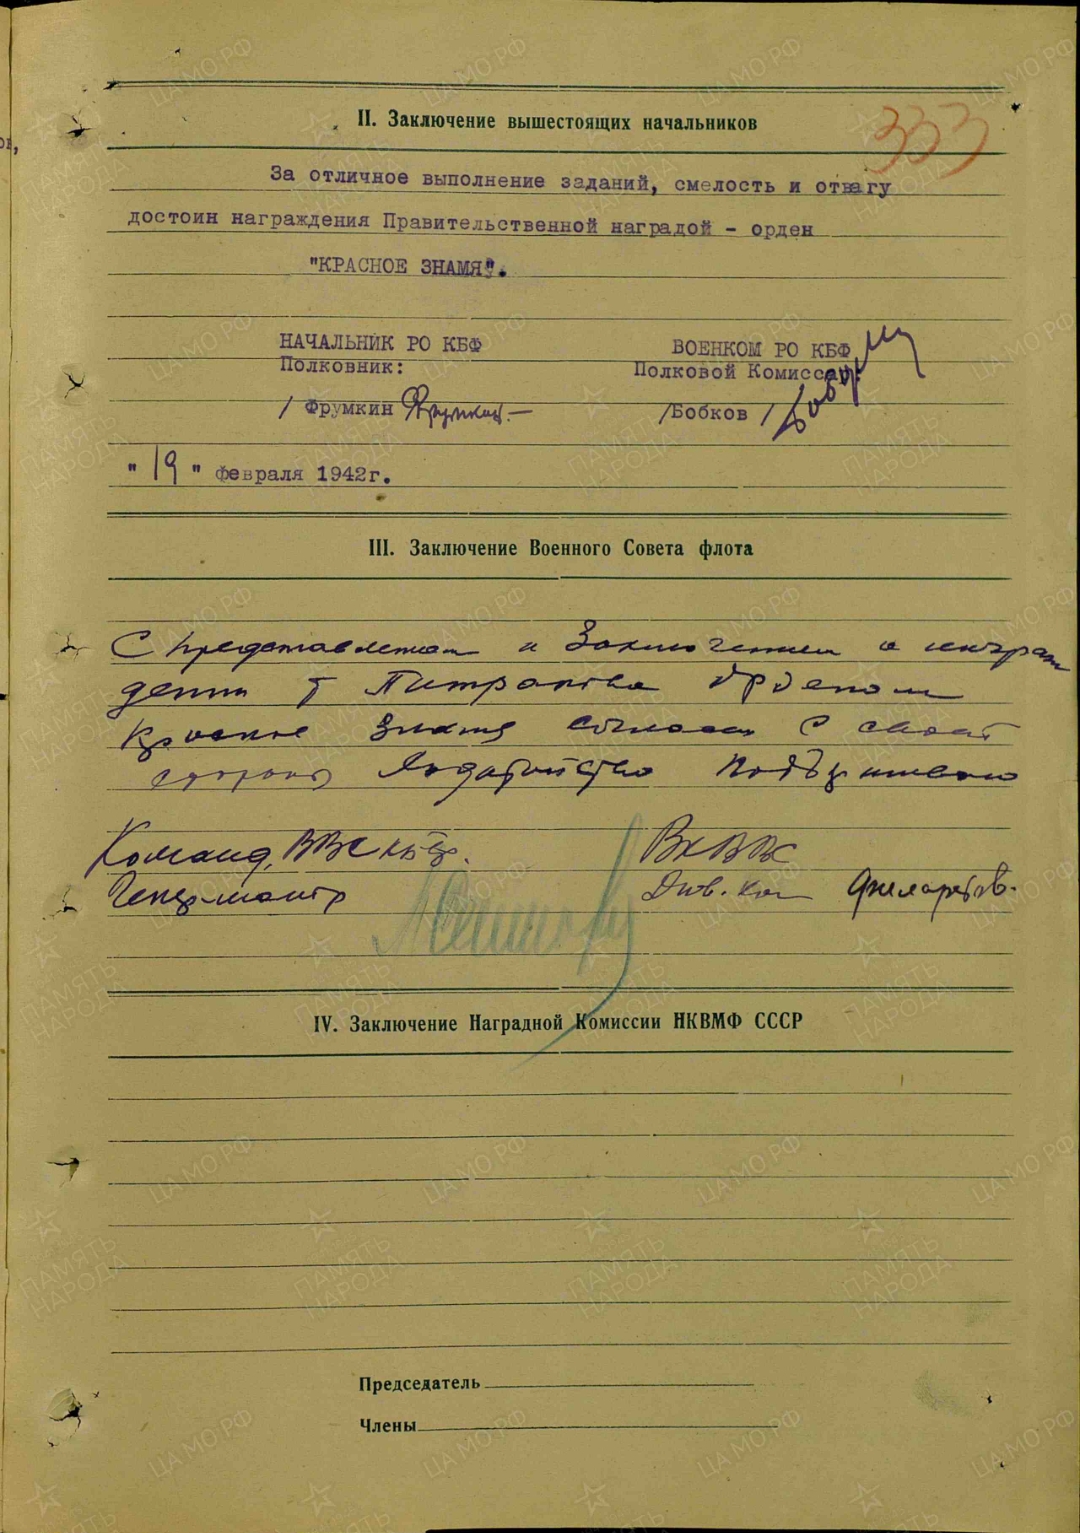 ов,
333
II. Заключение вышестоящих начальников
За отличное выполнение заданий, смелость и отвагу
достоин награждения Правительственной наградой - орден
"КРАСНОЕ ЗНАМЯ".
НАЧАЛЬНИК РО КБФ
ВОЕНКОМ РО КБФ
Полковник:
Полковой Комиссар:
/ Фрумкин
/Бобков /
" 19 " февраля 1942г.
III. Заключение Военного Совета флота
С представлением и Заключением о награж
дении т орденом
Красное Знамя согласен с своей
стороны Ходатайство
Команд. ВВС КБФ.
ВК ВВС
Генер-майор
Див. ком
IV. Заключение Наградной Комиссии НКВМФ СССР
Председатель
Члены
ЦАМО РФ
ПАМЯТЬ НАРОДА